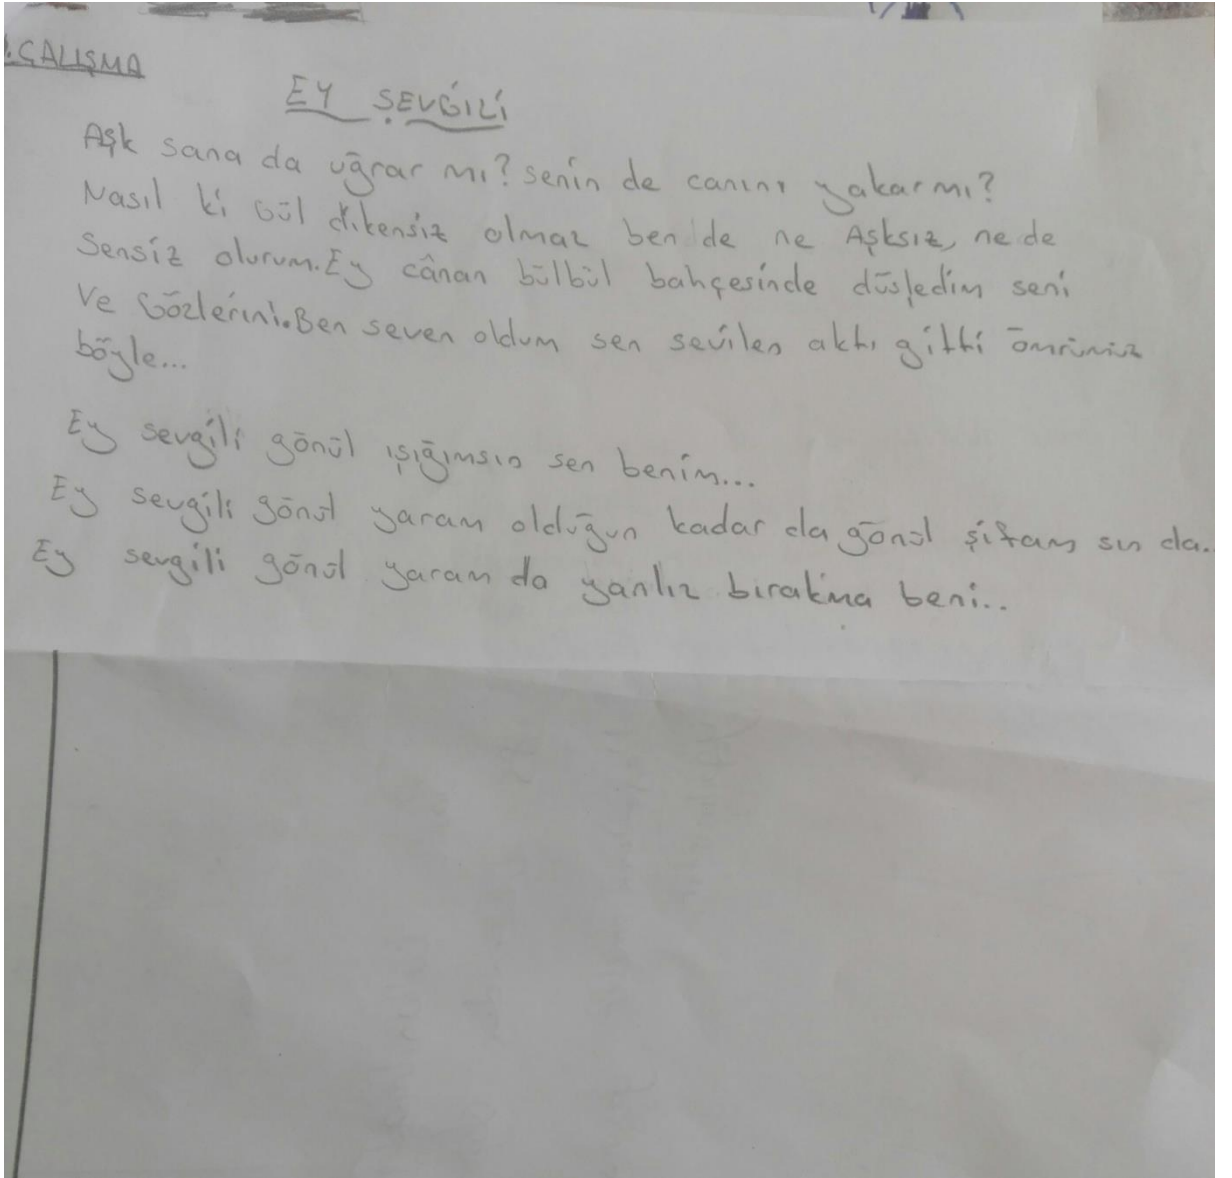 .ÇALIŞMA
EY SEVGİLİ
Aşk sana da uğrar mı? senin de canını yakar mı?
Nasıl ki Gül dikensiz olmaz ben de ne Aşksız, ne de
Sensiz olurum. Ey cânan bülbül bahçesinde düşledim seni
Ve Gözlerini. Ben seven oldum sen sevilen aktı gitti ömrümüz
böyle...
Ey sevgili gönül ışığımsın sen benim...
Ey sevgili gönül yaram olduğun kadar da gönül şifam sın da..
Ey sevgili gönül yaram da yanlız bırakma beni..